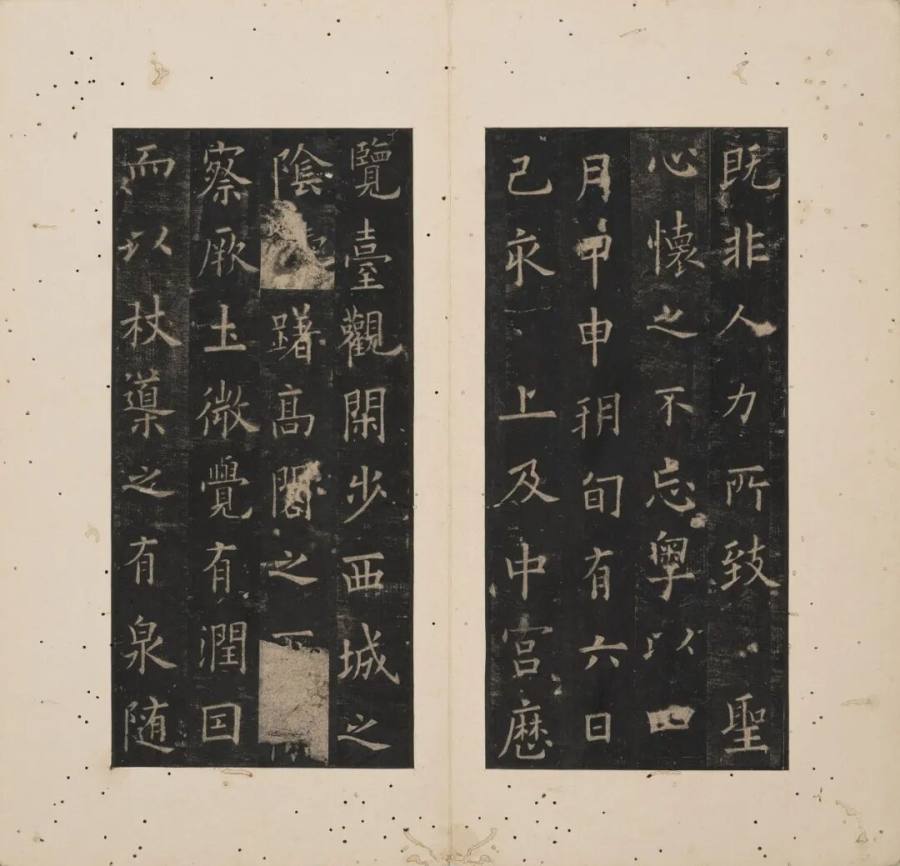 既非人力所致聖
心懷之不忘粤以四
月甲申朔旬有六日
己亥上及中宮歷
覽臺觀閑步西城之
陰躇高閣之
察厥土微覺有潤因
而以杖導之有泉随